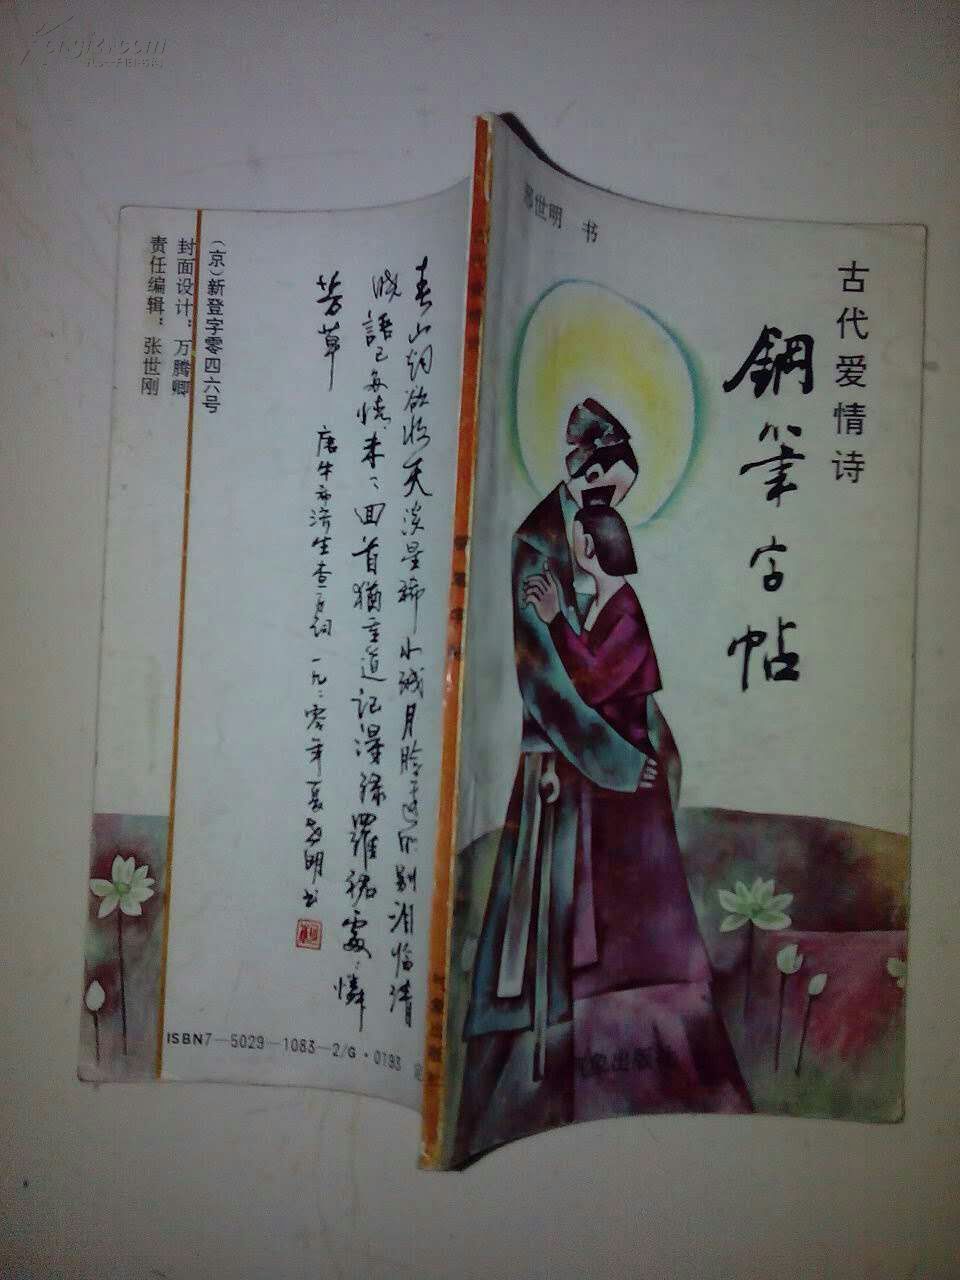 古代爱情诗
鋼笔字帖
世明 书
象出版社
春山烟欲收天淡星稀小残月脸边明别泪临清
晓語已多情未了回首猶重道記得绿羅裙處:憐
芳草 唐牛希济生查子词 一九九零年夏世明书
(京)新登字零四六号
封面设计：万腾卿
责任编辑：张世刚
ISBN7—5029—1083—2/G·0193 定